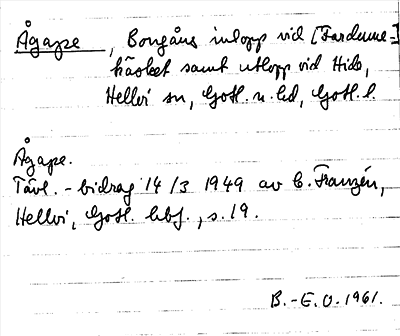 Ågapse, Bongåns inlopp vid [Fardume-]
träsket samt utlopp vid Hide,
Hellvi sn, Gotl. n. hd, Gotl. l.
Ågape.
Tävl.-bidrag 14/3 1949 av C. Franzén,
Hellvi, Gotl. hbf., s. 19.
B.-E. O. 1961.